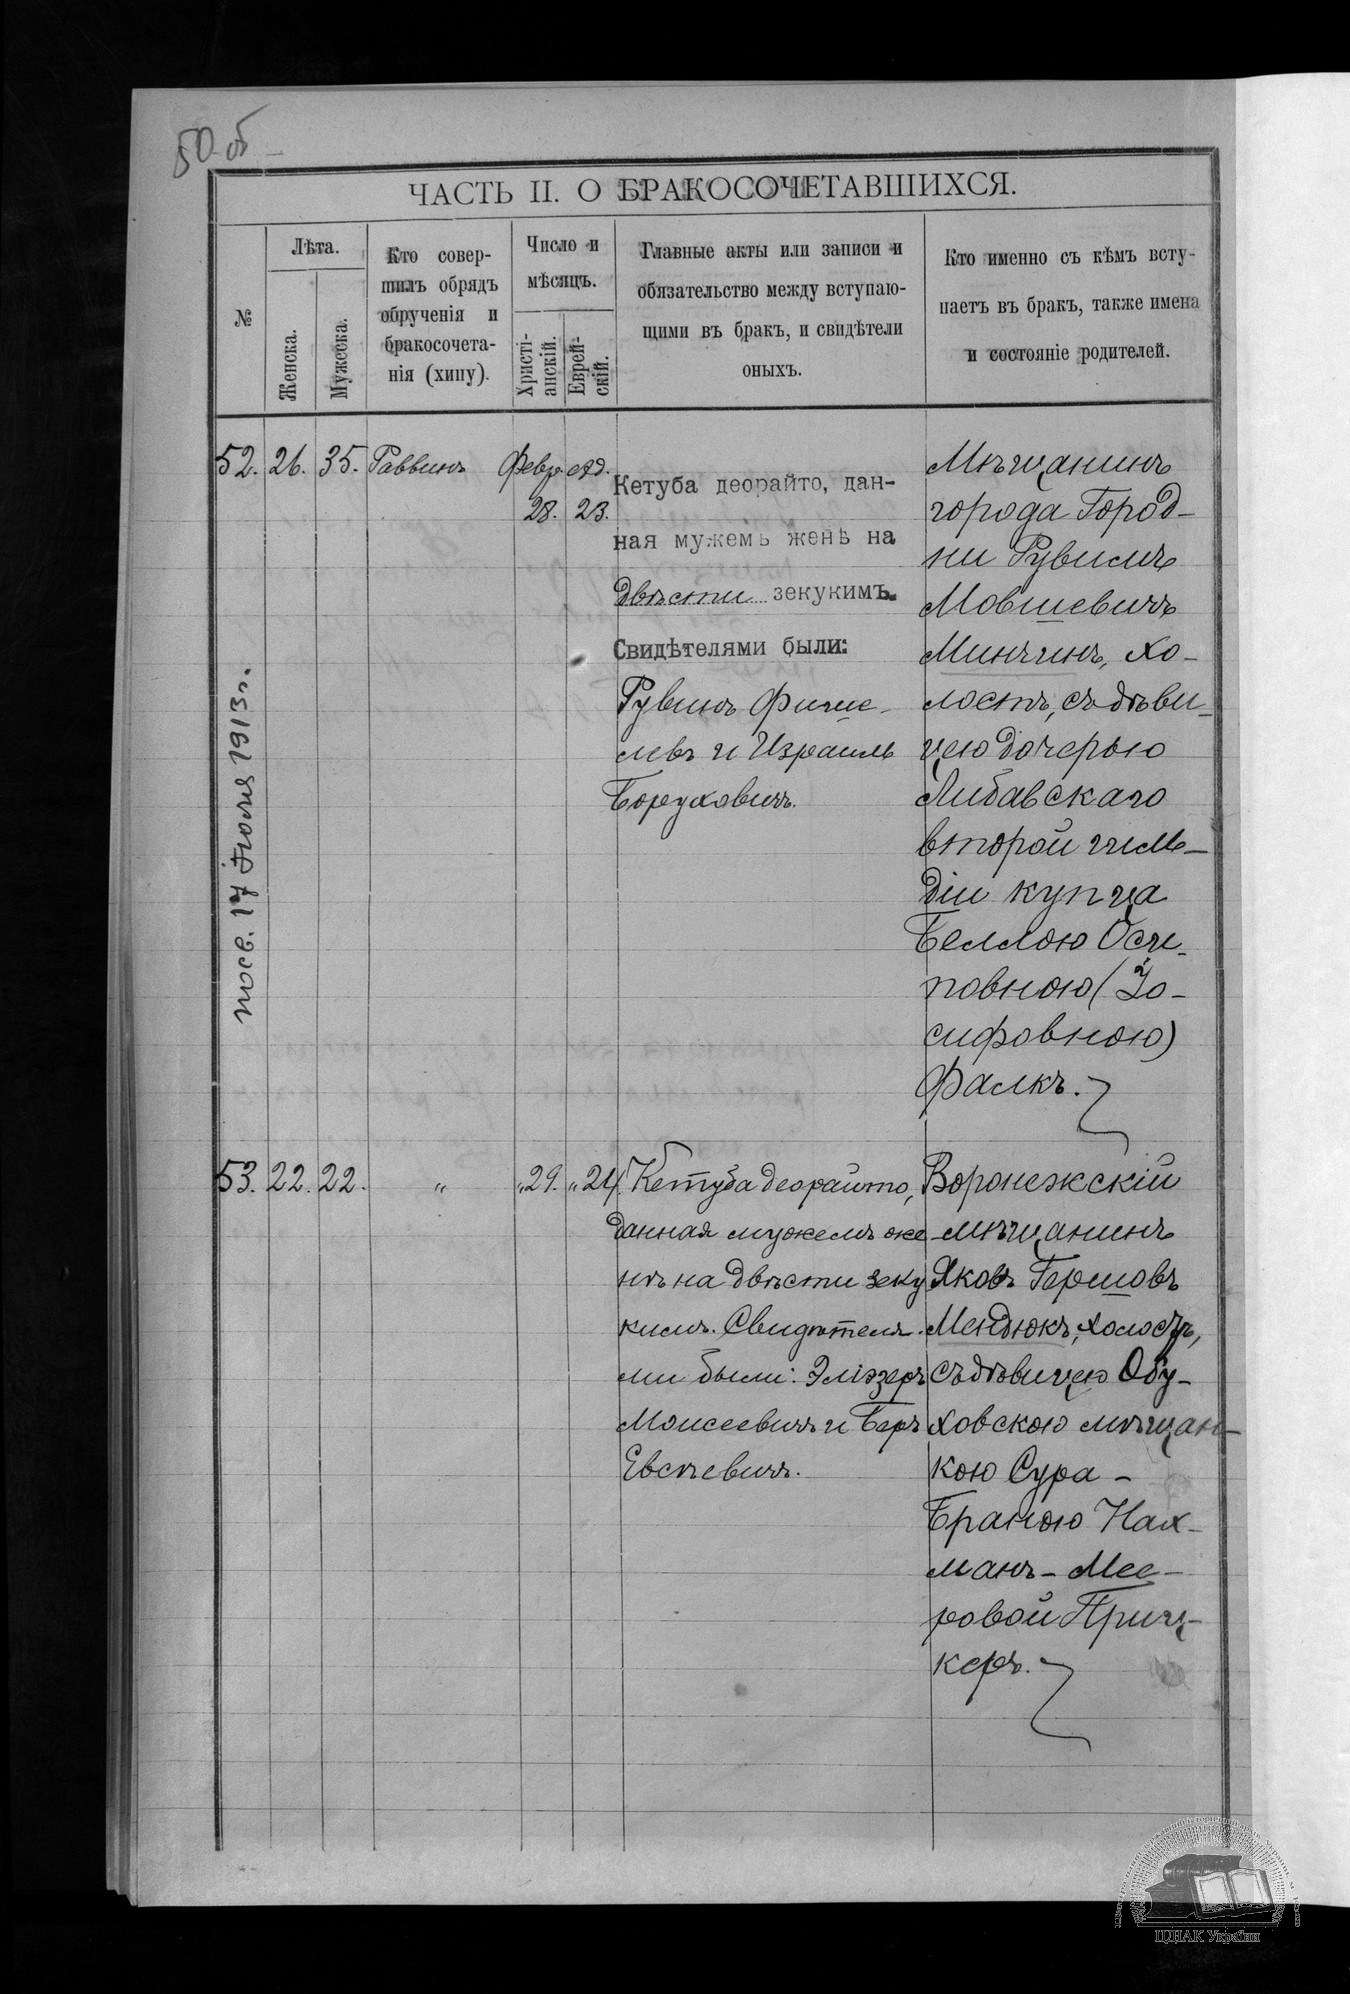 50 об
ЧАСТЬ II. О БРАКОСОЧЕТАВШИХСЯ.
№
Лѣта.
Женска.
Мужеска.
Кто совер-
шилъ обрядъ
обрученія и
бракосочета-
нія (хипу).
Число и
мѣсяцъ.
Христі-
анскій.
Еврей-
скій.
Главные акты или записи и
обязательство между вступаю-
щими въ бракъ, и свидѣтели
оныхъ.
Кто именно съ кѣмъ всту-
паетъ въ бракъ, также имена
и состояніе родителей.
52. 26. 35. Раввинъ Февр. Ад.
28. 23.
Кетуба деорайто, дан-
ная мужемъ женѣ на
двѣсти зекукимъ.
Свидѣтелями были:
Рувинъ Фише-
левъ и Израиль
Боруховичъ.
Мѣщанинъ
города Город-
ни Рувимъ
Мовшевичъ
Минчинъ, хо-
лостъ, съ дѣви-
цею дочерью
Либавскаго
второй гиль-
діи купца
Беллою Оси-
повною (Іо-
сифовною)
Фалкъ.
посв. 17 Іюля 1913 г.
53. 22. 22. " "29. "24.
Кетуба деорайто,
данная мужемъ же-
нѣ на двѣсти зеку
кимъ. Свидѣтеля-
ми были: Эліэзеръ
Моисеевичъ и Беръ
Евсѣевичъ.
Воронежскій
мѣщанинъ
Яковъ Гершовъ
Мендюкъ, холостъ,
съ дѣвицею Обу-
ховскою мѣщан-
кою Сура-
Браною Нах-
манъ-Мее-
ровой Приц-
керъ.
ЦДІАК України